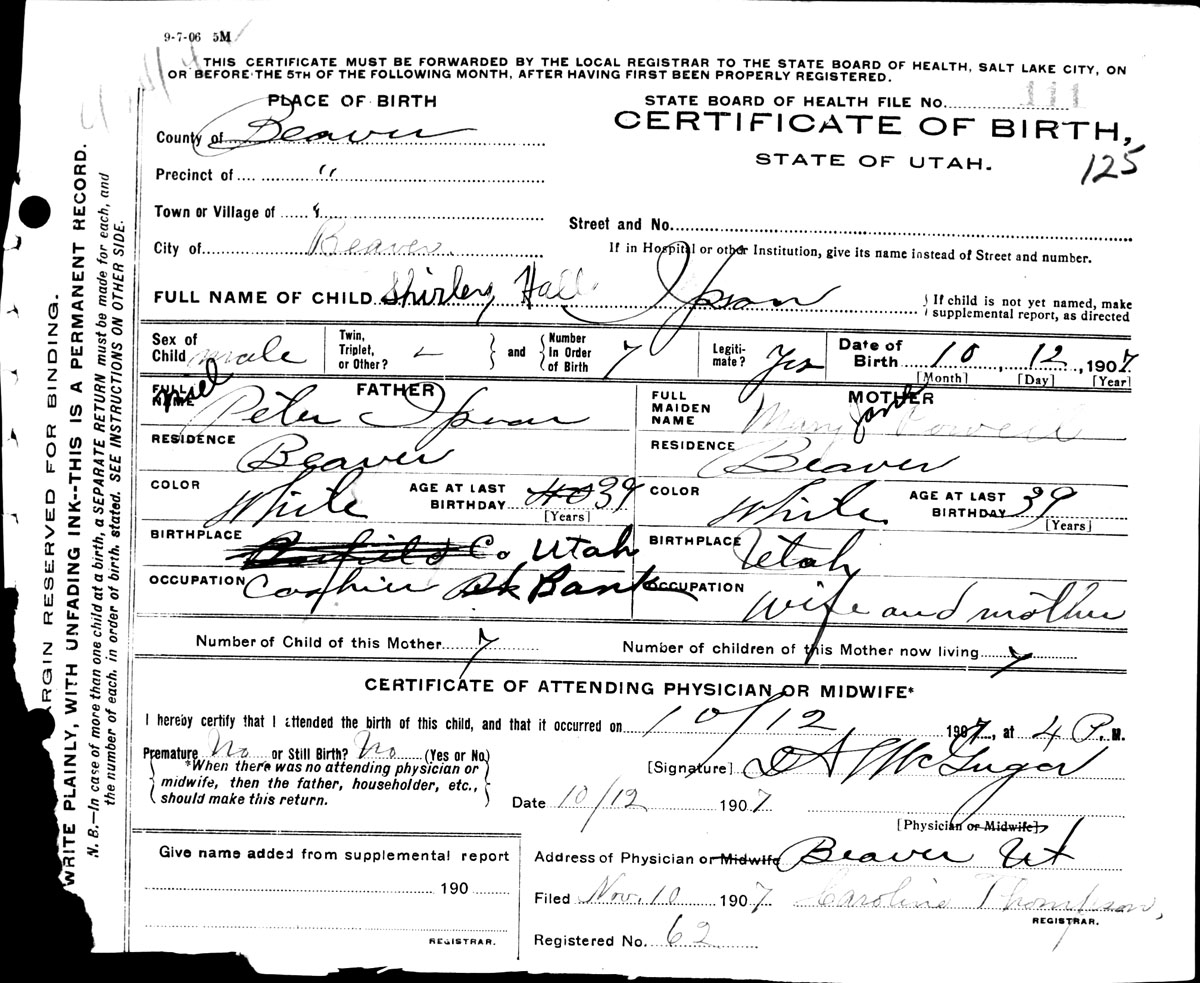 9-7-06 5M
THIS CERTIFICATE MUST BE FORWARDED BY THE LOCAL REGISTRAR TO THE STATE BOARD OF HEALTH, SALT LAKE CITY, ON
OR BEFORE THE 5TH OF THE FOLLOWING MONTH, AFTER HAVING FIRST BEEN PROPERLY REGISTERED.
PLACE OF BIRTH
STATE BOARD OF HEALTH FILE No. 111
County of Beaver
CERTIFICATE OF BIRTH,
STATE OF UTAH.
125
Precinct of "
Town or Village of "
Street and No.
City of Beaver.
If in Hospital or other Institution, give its name instead of Street and number.
FULL NAME OF CHILD Shirley Hall Ipson
If child is not yet named, make
supplemental report, as directed
Sex of Child male
Twin, Triplet, or Other? -
and Number In Order of Birth 7
Legiti-mate? Yes
Date of Birth 10, 12, 1907
[Month] [Day] [Year]
FATHER
FULL NAME Peter Ipson
MOTHER
FULL MAIDEN NAME Mary Jane Powell
RESIDENCE Beaver
RESIDENCE Beaver
COLOR White
AGE AT LAST BIRTHDAY 40 39
[Years]
COLOR White
AGE AT LAST BIRTHDAY 39
[Years]
BIRTHPLACE Co Utah
BIRTHPLACE Utah
OCCUPATION Cashier Bank
OCCUPATION Wife and mother
Number of Child of this Mother 7
Number of children of this Mother now living 7
CERTIFICATE OF ATTENDING PHYSICIAN OR MIDWIFE*
I hereby certify that I attended the birth of this child, and that it occurred on 10/12 1907, at 4 P. M.
Premature No or Still Birth? No (Yes or No)
*When there was no attending physician or
midwife, then the father, householder, etc.,
should make this return.
[Signature]
Date 10/12 1907
[Physician or Midwife]
Give name added from supplemental report
190
REGISTRAR.
Address of Physician or Midwife Beaver Ut
Filed Nov. 10 1907 Caroline Thompson,
REGISTRAR.
Registered No. 62
MARGIN RESERVED FOR BINDING.
WRITE PLAINLY, WITH UNFADING INK--THIS IS A PERMANENT RECORD.
N. B.—In case of more than one child at a birth, a SEPARATE RETURN must be made for each, and
the number of each, in order of birth, stated. SEE INSTRUCTIONS ON OTHER SIDE.